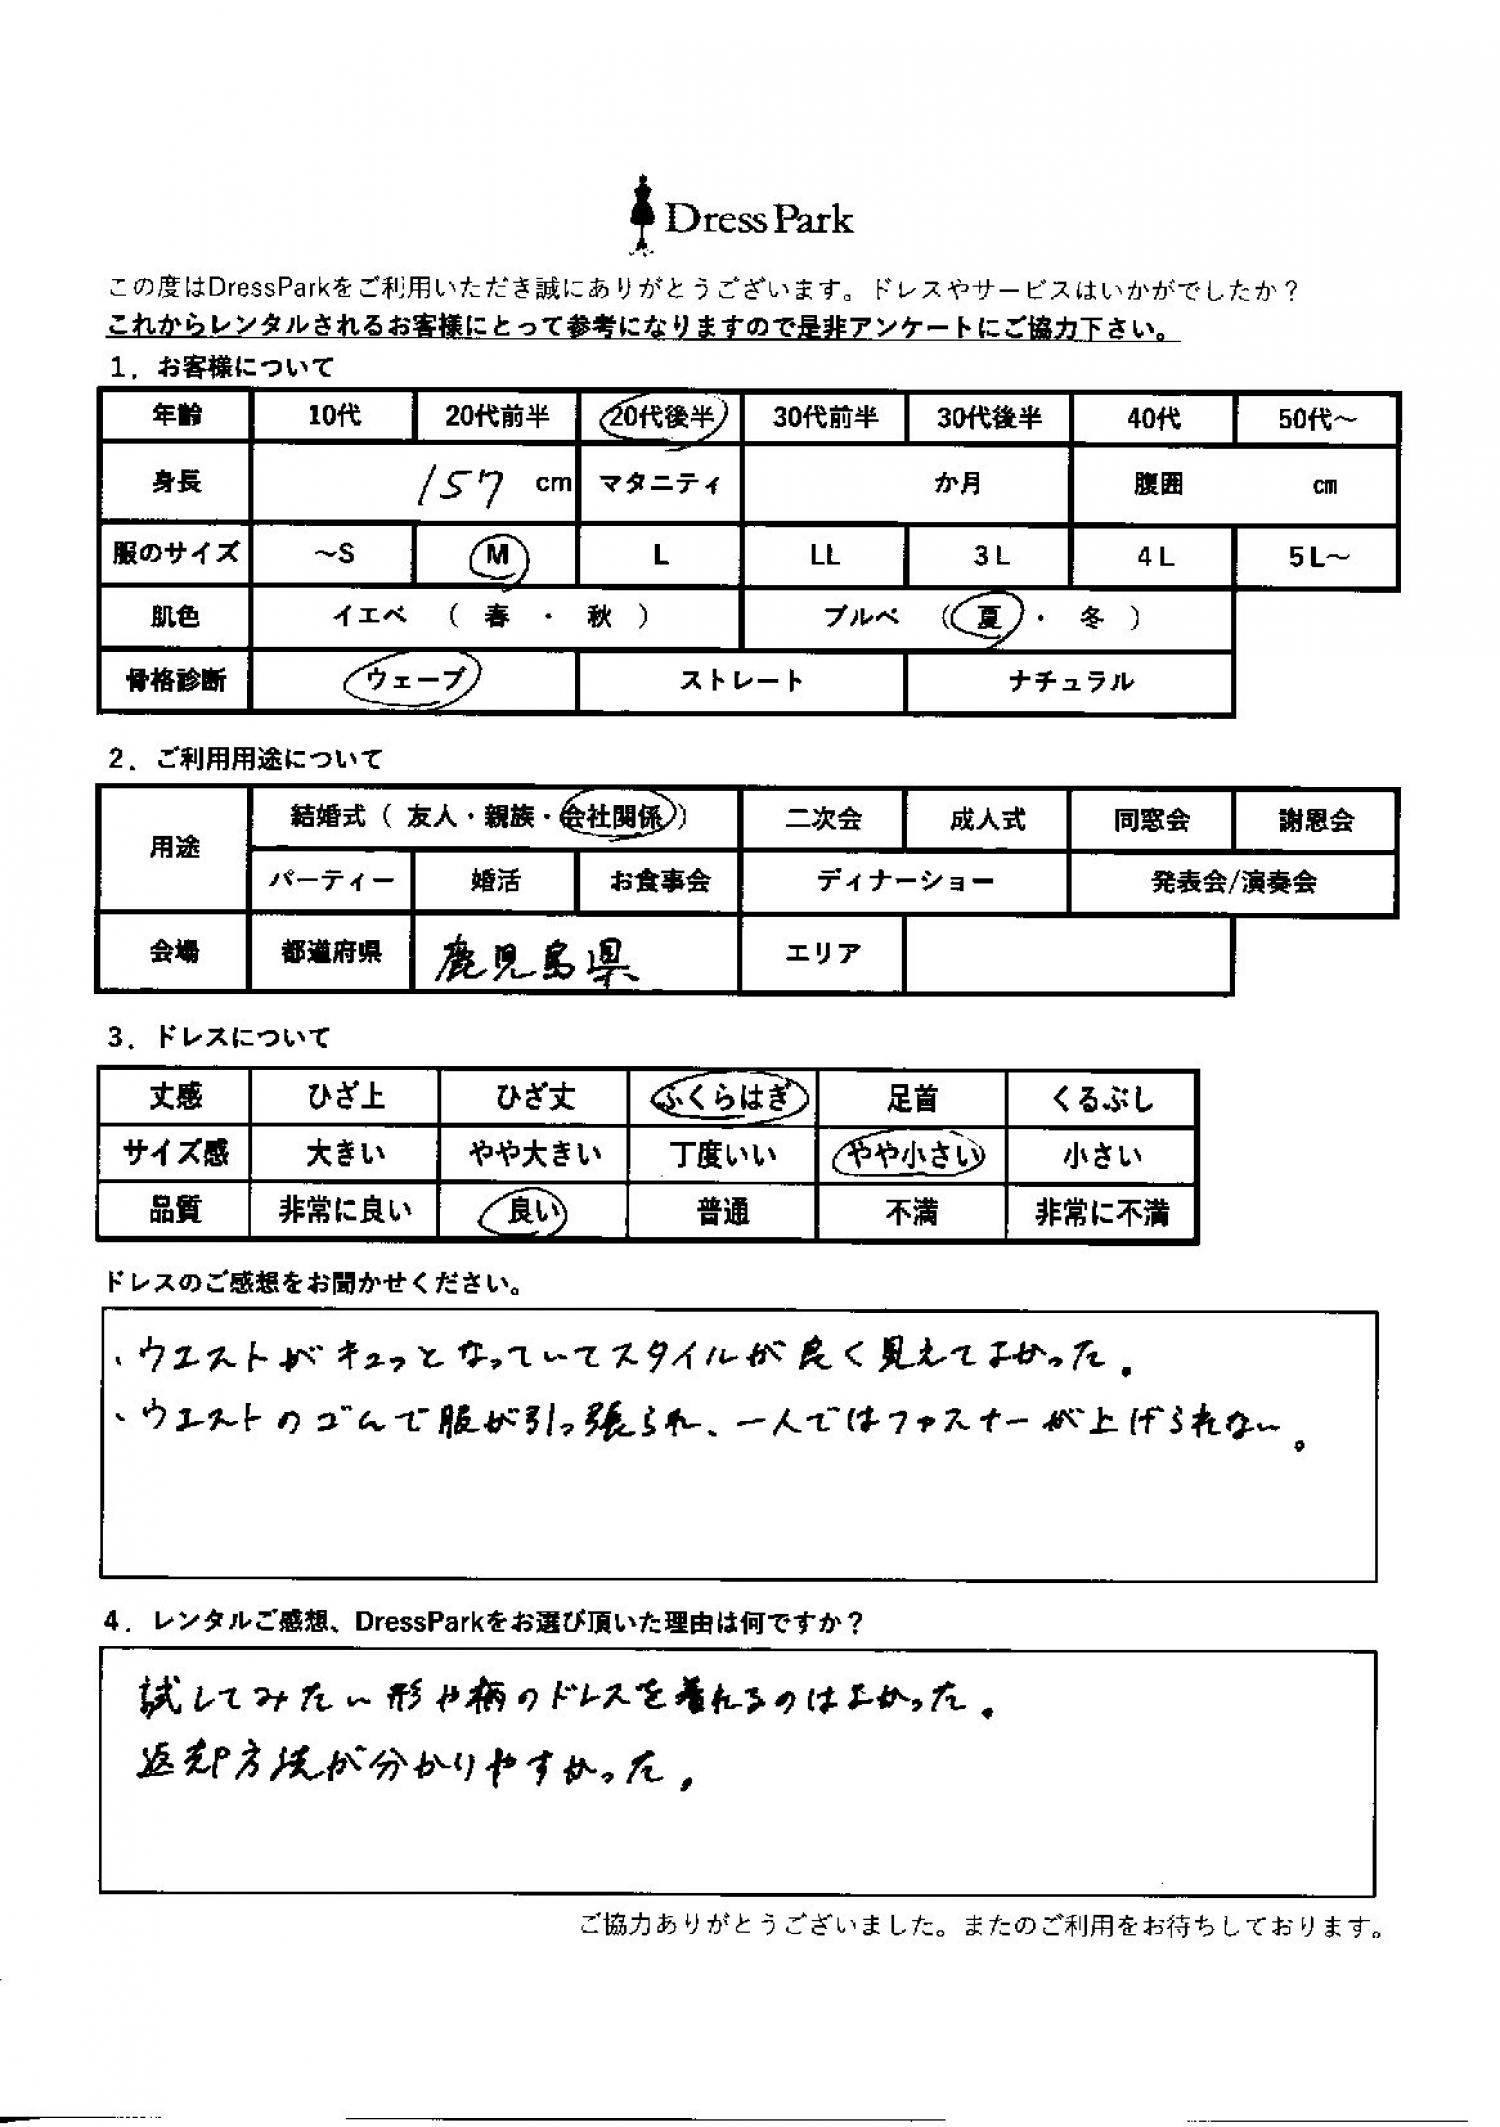 Dress Park
この度はDressParkをご利用いただき誠にありがとうございます。ドレスやサービスはいかがでしたか？
これからレンタルされるお客様にとって参考になりますので是非アンケートにご協力下さい。
1．お客様について
年齢 10代 20代前半 20代後半 30代前半 30代後半 40代 50代～
身長 157 cm マタニティ か月 腹囲 cm
服のサイズ ～S M L LL 3L 4L 5L～
肌色 イエベ （ 春 ・ 秋 ） ブルベ （ 夏 ・ 冬 ）
骨格診断 ウェーブ ストレート ナチュラル
2．ご利用用途について
用途 結婚式（ 友人・親族・会社関係） 二次会 成人式 同窓会 謝恩会
パーティー 婚活 お食事会 ディナーショー 発表会/演奏会
会場 都道府県 鹿児島県 エリア
3．ドレスについて
丈感 ひざ上 ひざ丈 ふくらはぎ 足首 くるぶし
サイズ感 大きい やや大きい 丁度いい やや小さい 小さい
品質 非常に良い 良い 普通 不満 非常に不満
ドレスのご感想をお聞かせください。
、ウエストがキュっとなっていてスタイルが良く見えてよかった。
、ウエストのゴムで服が引っ張られ、一人ではファスナーが上げられない。
4．レンタルご感想、DressParkをお選び頂いた理由は何ですか？
試してみたい形や柄のドレスを着れるのはよかった。
返却方法が分かりやすかった。
ご協力ありがとうございました。またのご利用をお待ちしております。